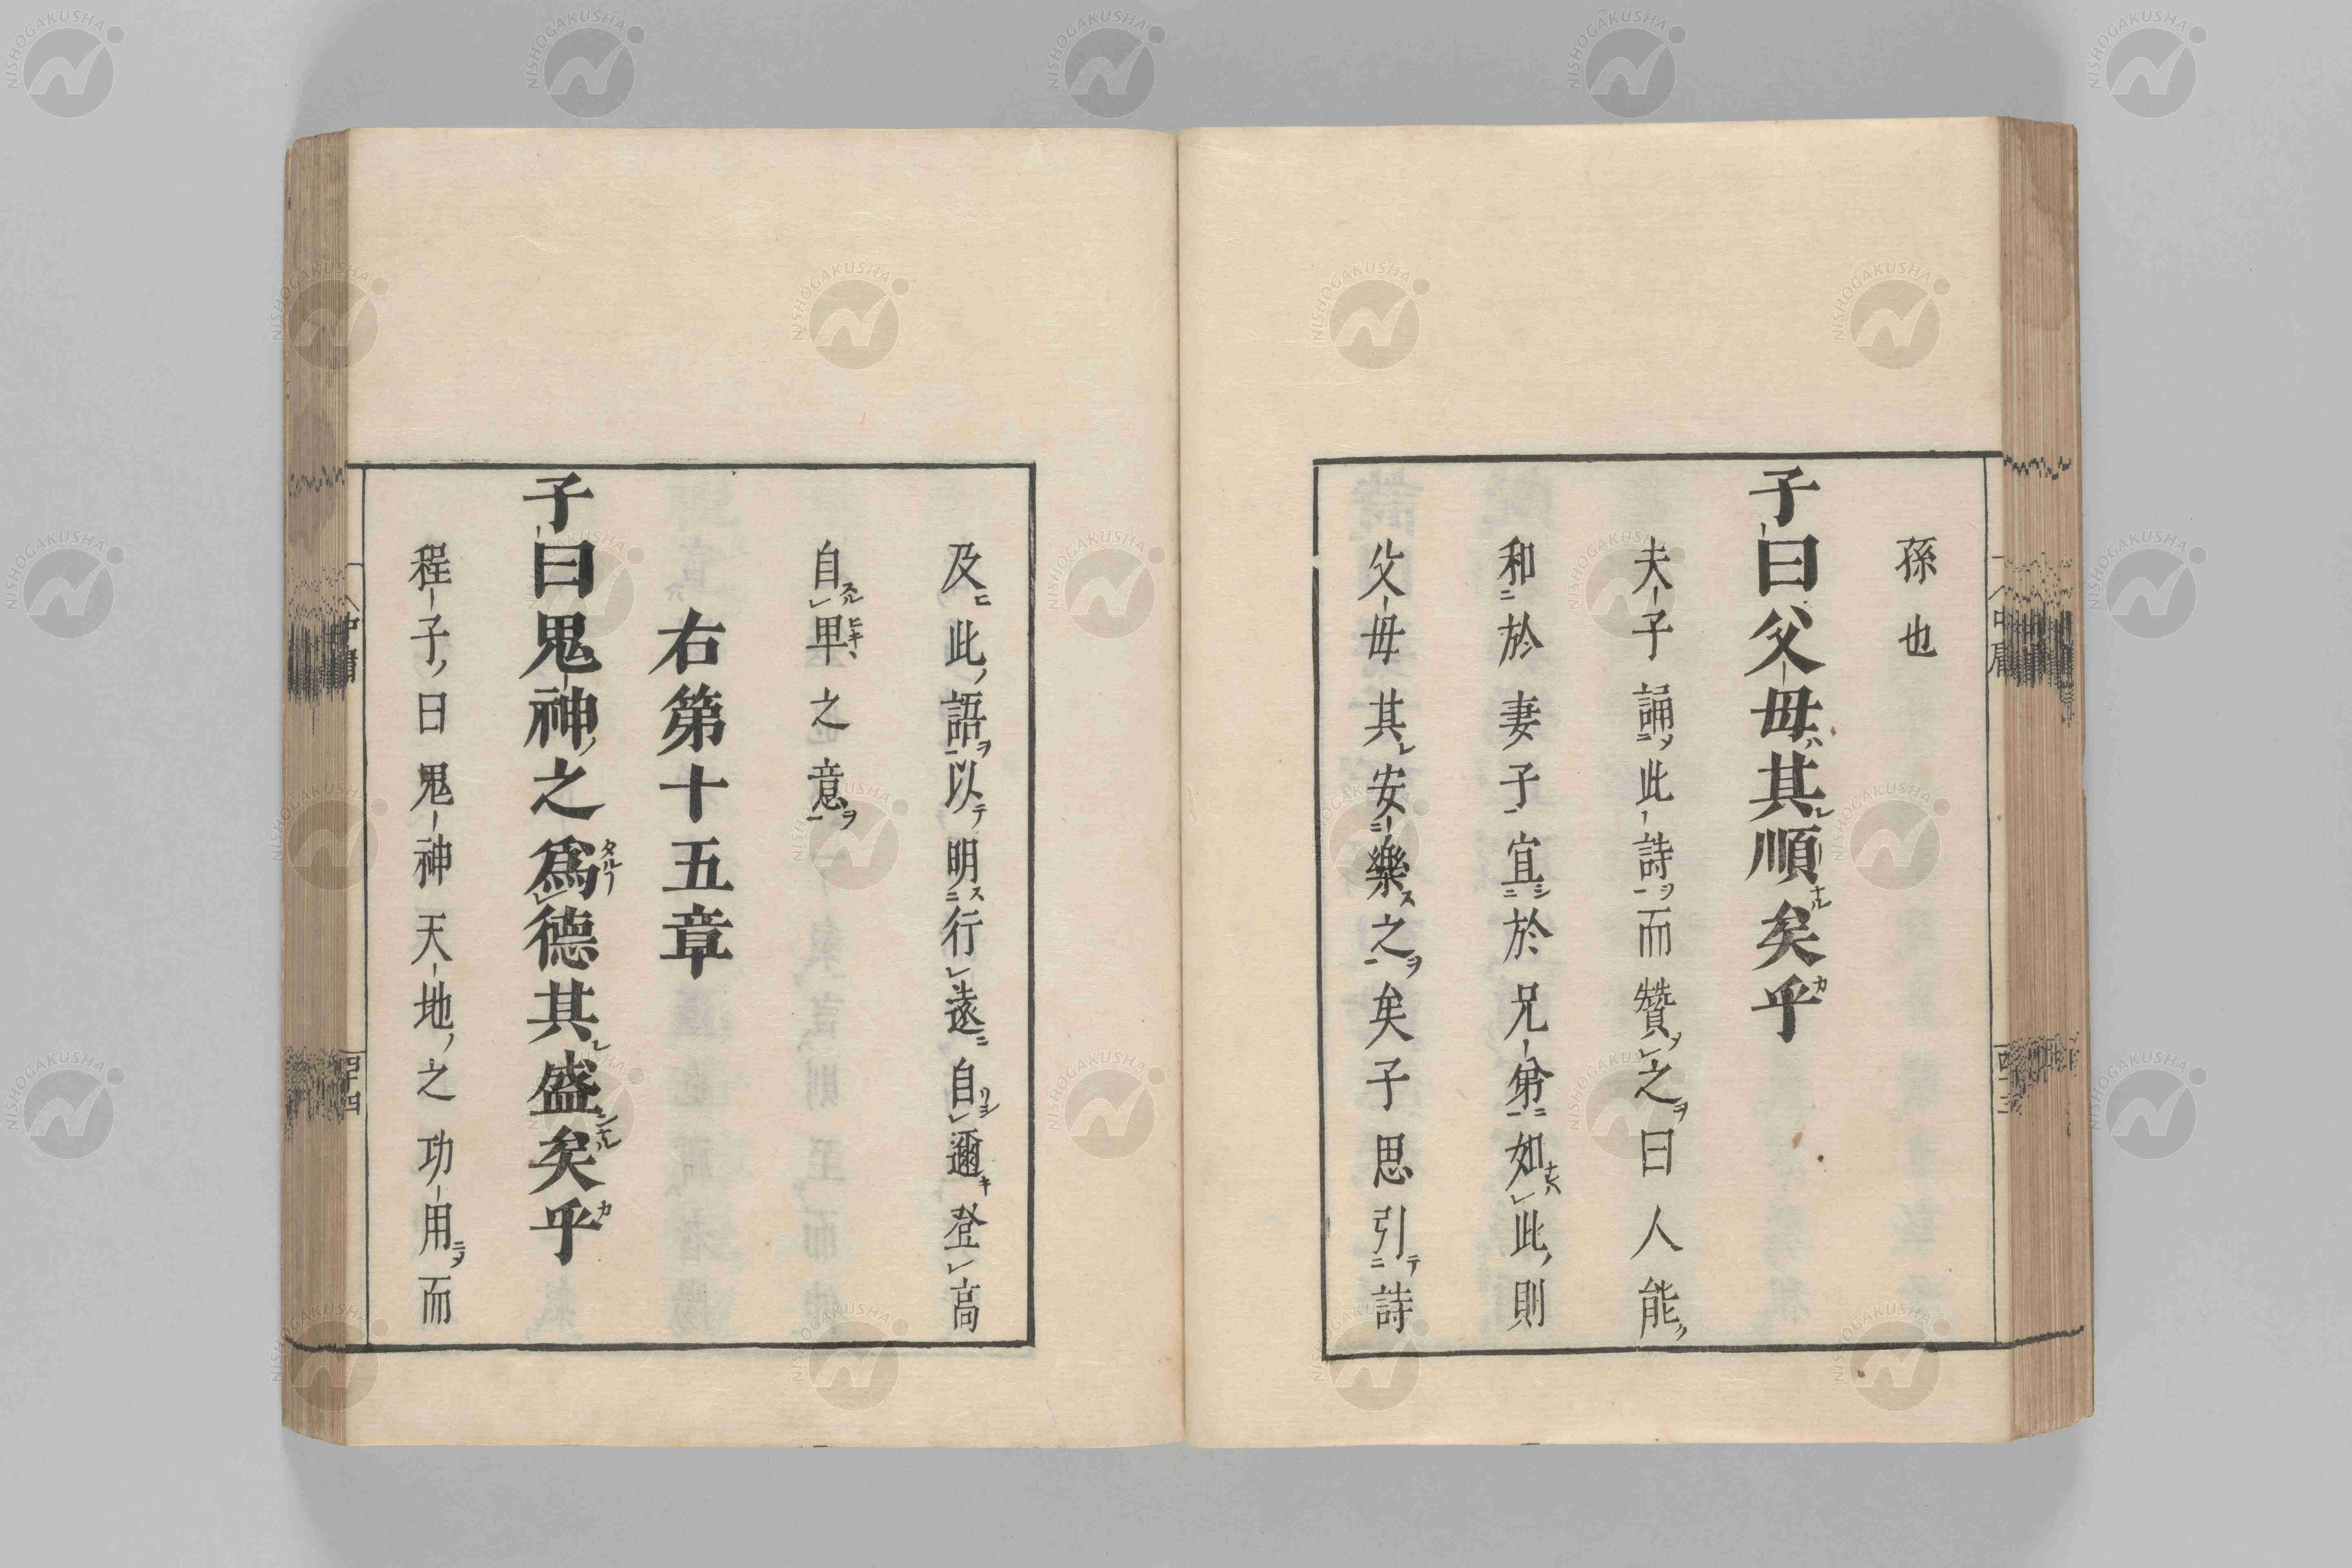 孫也
子曰父母其順矣乎
夫子誦此詩而贊之曰人能
和於妻子宜於兄弟如此則
父母其安樂之矣子思引詩
及此語以明行遠自邇登高
自卑之意
右第十五章
子曰鬼神之爲德其盛矣乎
程子曰鬼神天地之功用而
中庸
四十四
NISHOGAKUSHA